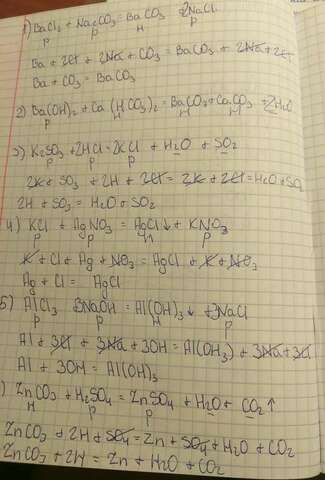 1) BaCl₂ + Na₂CO₃ = BaCO₃ + 2NaCl
р р Н р
Ba + 2Cl + 2Na + CO₃ = BaCO₃ + 2Na + 2Cl
Ba + CO₃ = BaCO₃
2) Ba(OH)₂ + Ca(HCO₃)₂ = BaCO₃ + CaCO₃ + 2H₂O
р Н Н Н
3) K₂SO₃ + 2HCl = 2KCl + H₂O + SO₂
р р р
2K + SO₃ + 2H + 2Cl = 2K + 2Cl = H₂O + SO₂
2H + SO₃ = H₂O + SO₂
4) KCl + AgNO₃ = AgCl↓ + KNO₃
р р Н р
K + Cl + Ag + NO₃ = AgCl + K + NO₃
Ag + Cl = AgCl
5) AlCl₃ 3NaOH = Al(OH)₃↓ + 3NaCl
р р Н р
Al + 3Cl + 3Na + 3OH = Al(OH₃) + 3Na + 3Cl
Al + 3OH = Al(OH)₃
) ZnCO₃ + H₂SO₄ = ZnSO₄ + H₂O + CO₂↑
Н р р
ZnCO₃ + 2H + SO₄ = Zn + SO₄ + H₂O + CO₂
ZnCO₃ + 2H = Zn + H₂O + CO₂